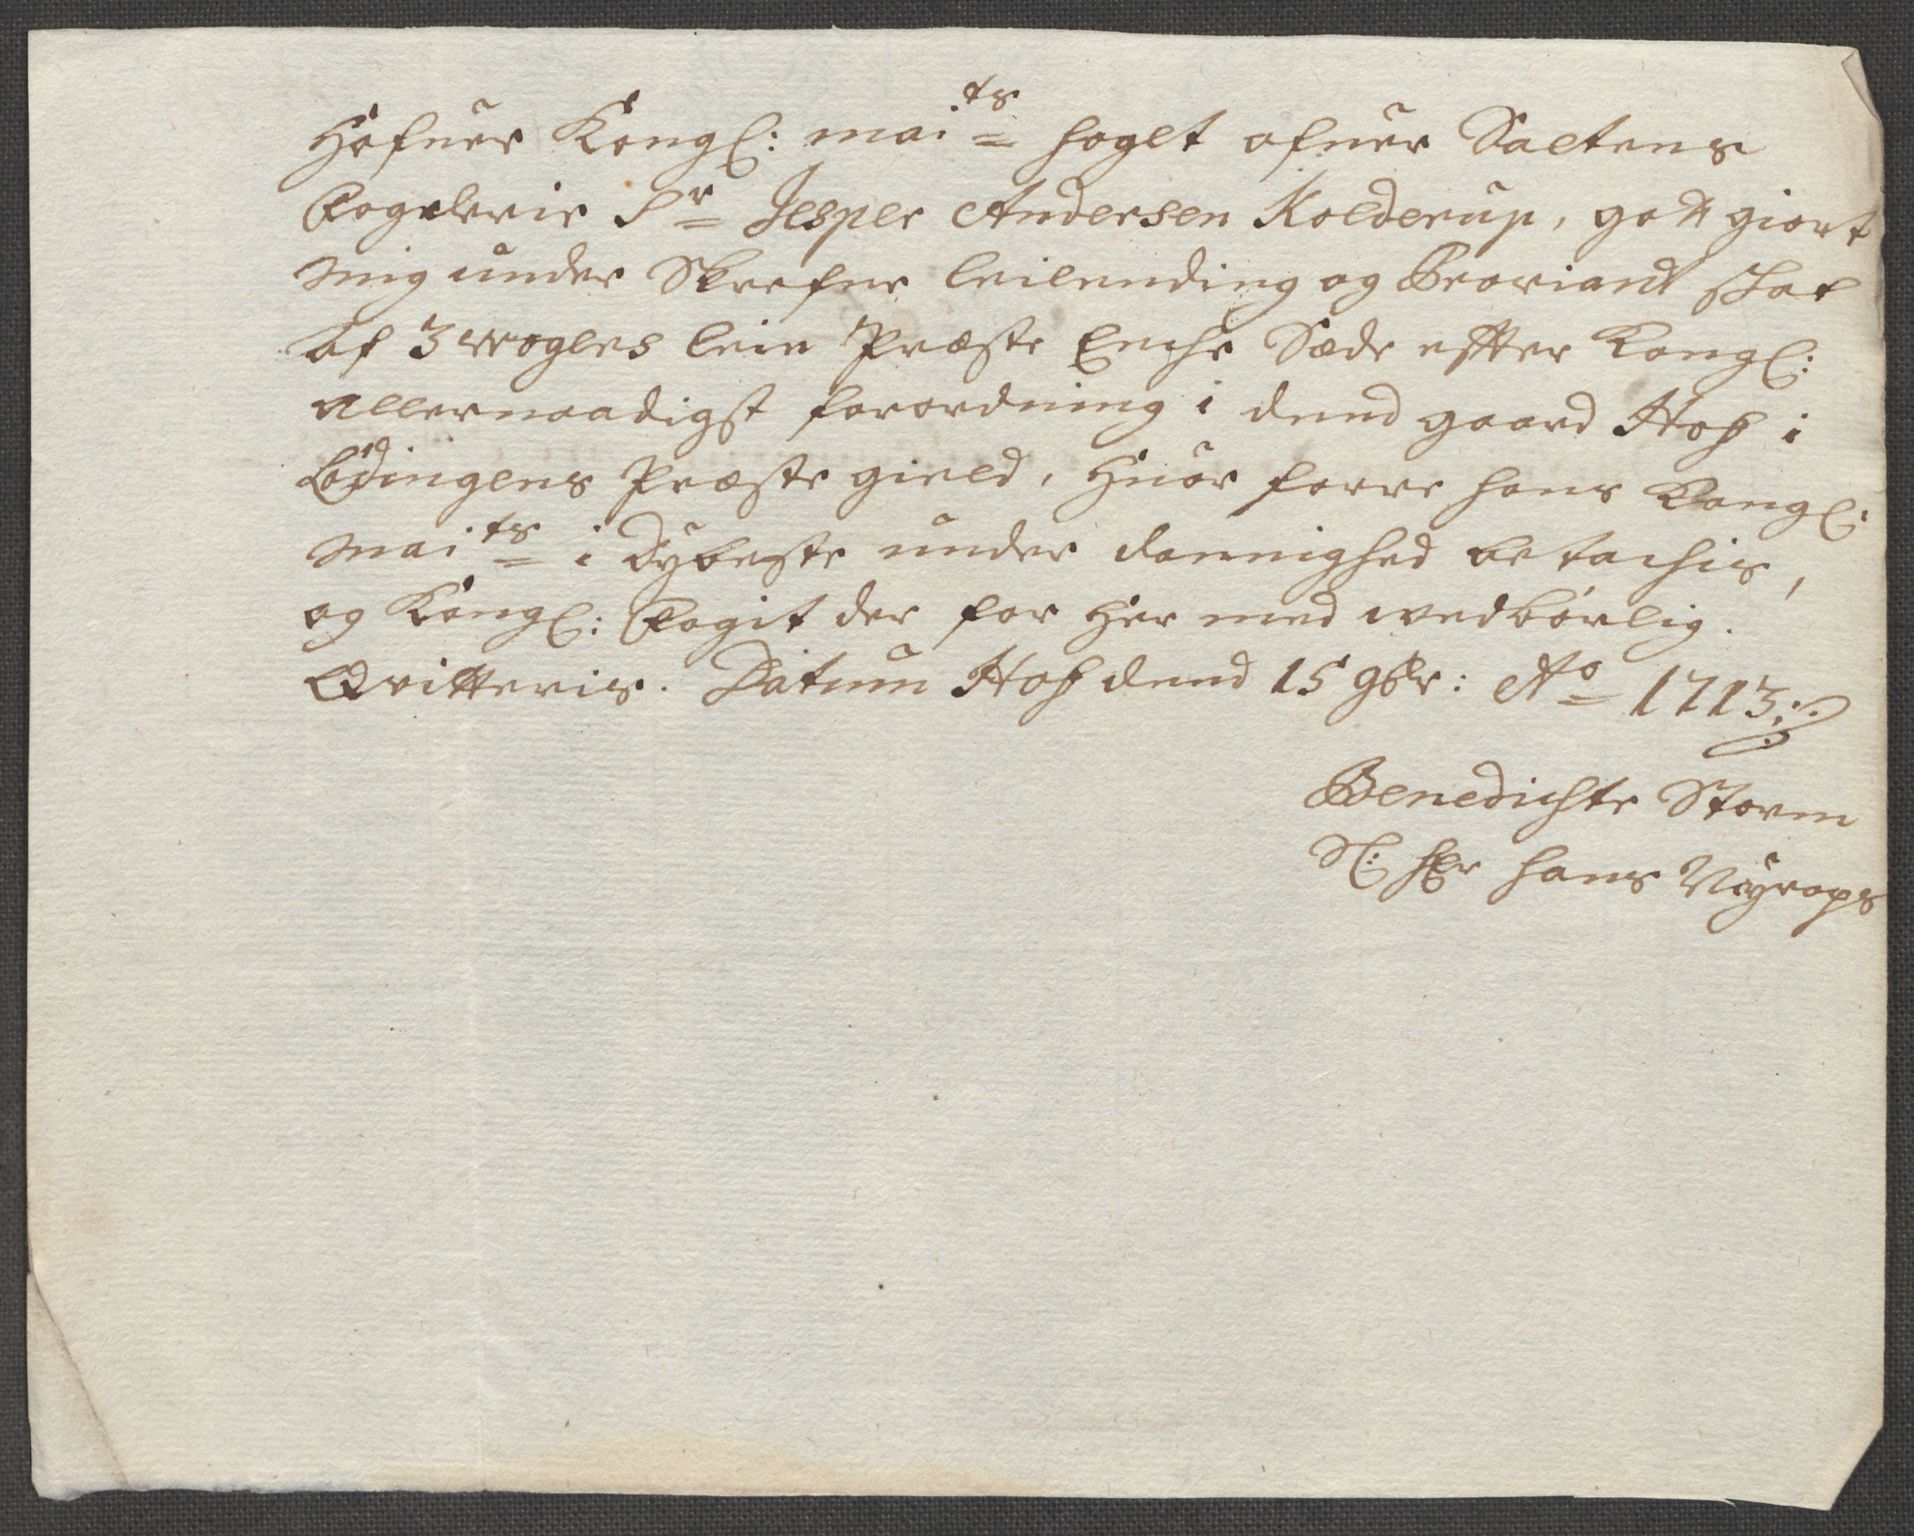 Hafuer Kongl: mai:ts foget ofuer Saltens
Fogderie Sr Jesper Andersen Kolderup, gott giort
mig under Skrefne leilending og Proviant schat
af 3 wogers leie Præste Enche Sæde effter Kongl:
allernaadigst forordning i dend gaard Hof i
Lødingens Præste gield, Huor forre hans Kongl:
mai:ts i Dybeste under dannighed be tachis,
og Kongl: Fogit der for Her med wedbørlig.
Qvitteris. Datum Hof dend 15 9br: Ao 1713
Benedichte Storm
Sl: Hr Hans Nyrops